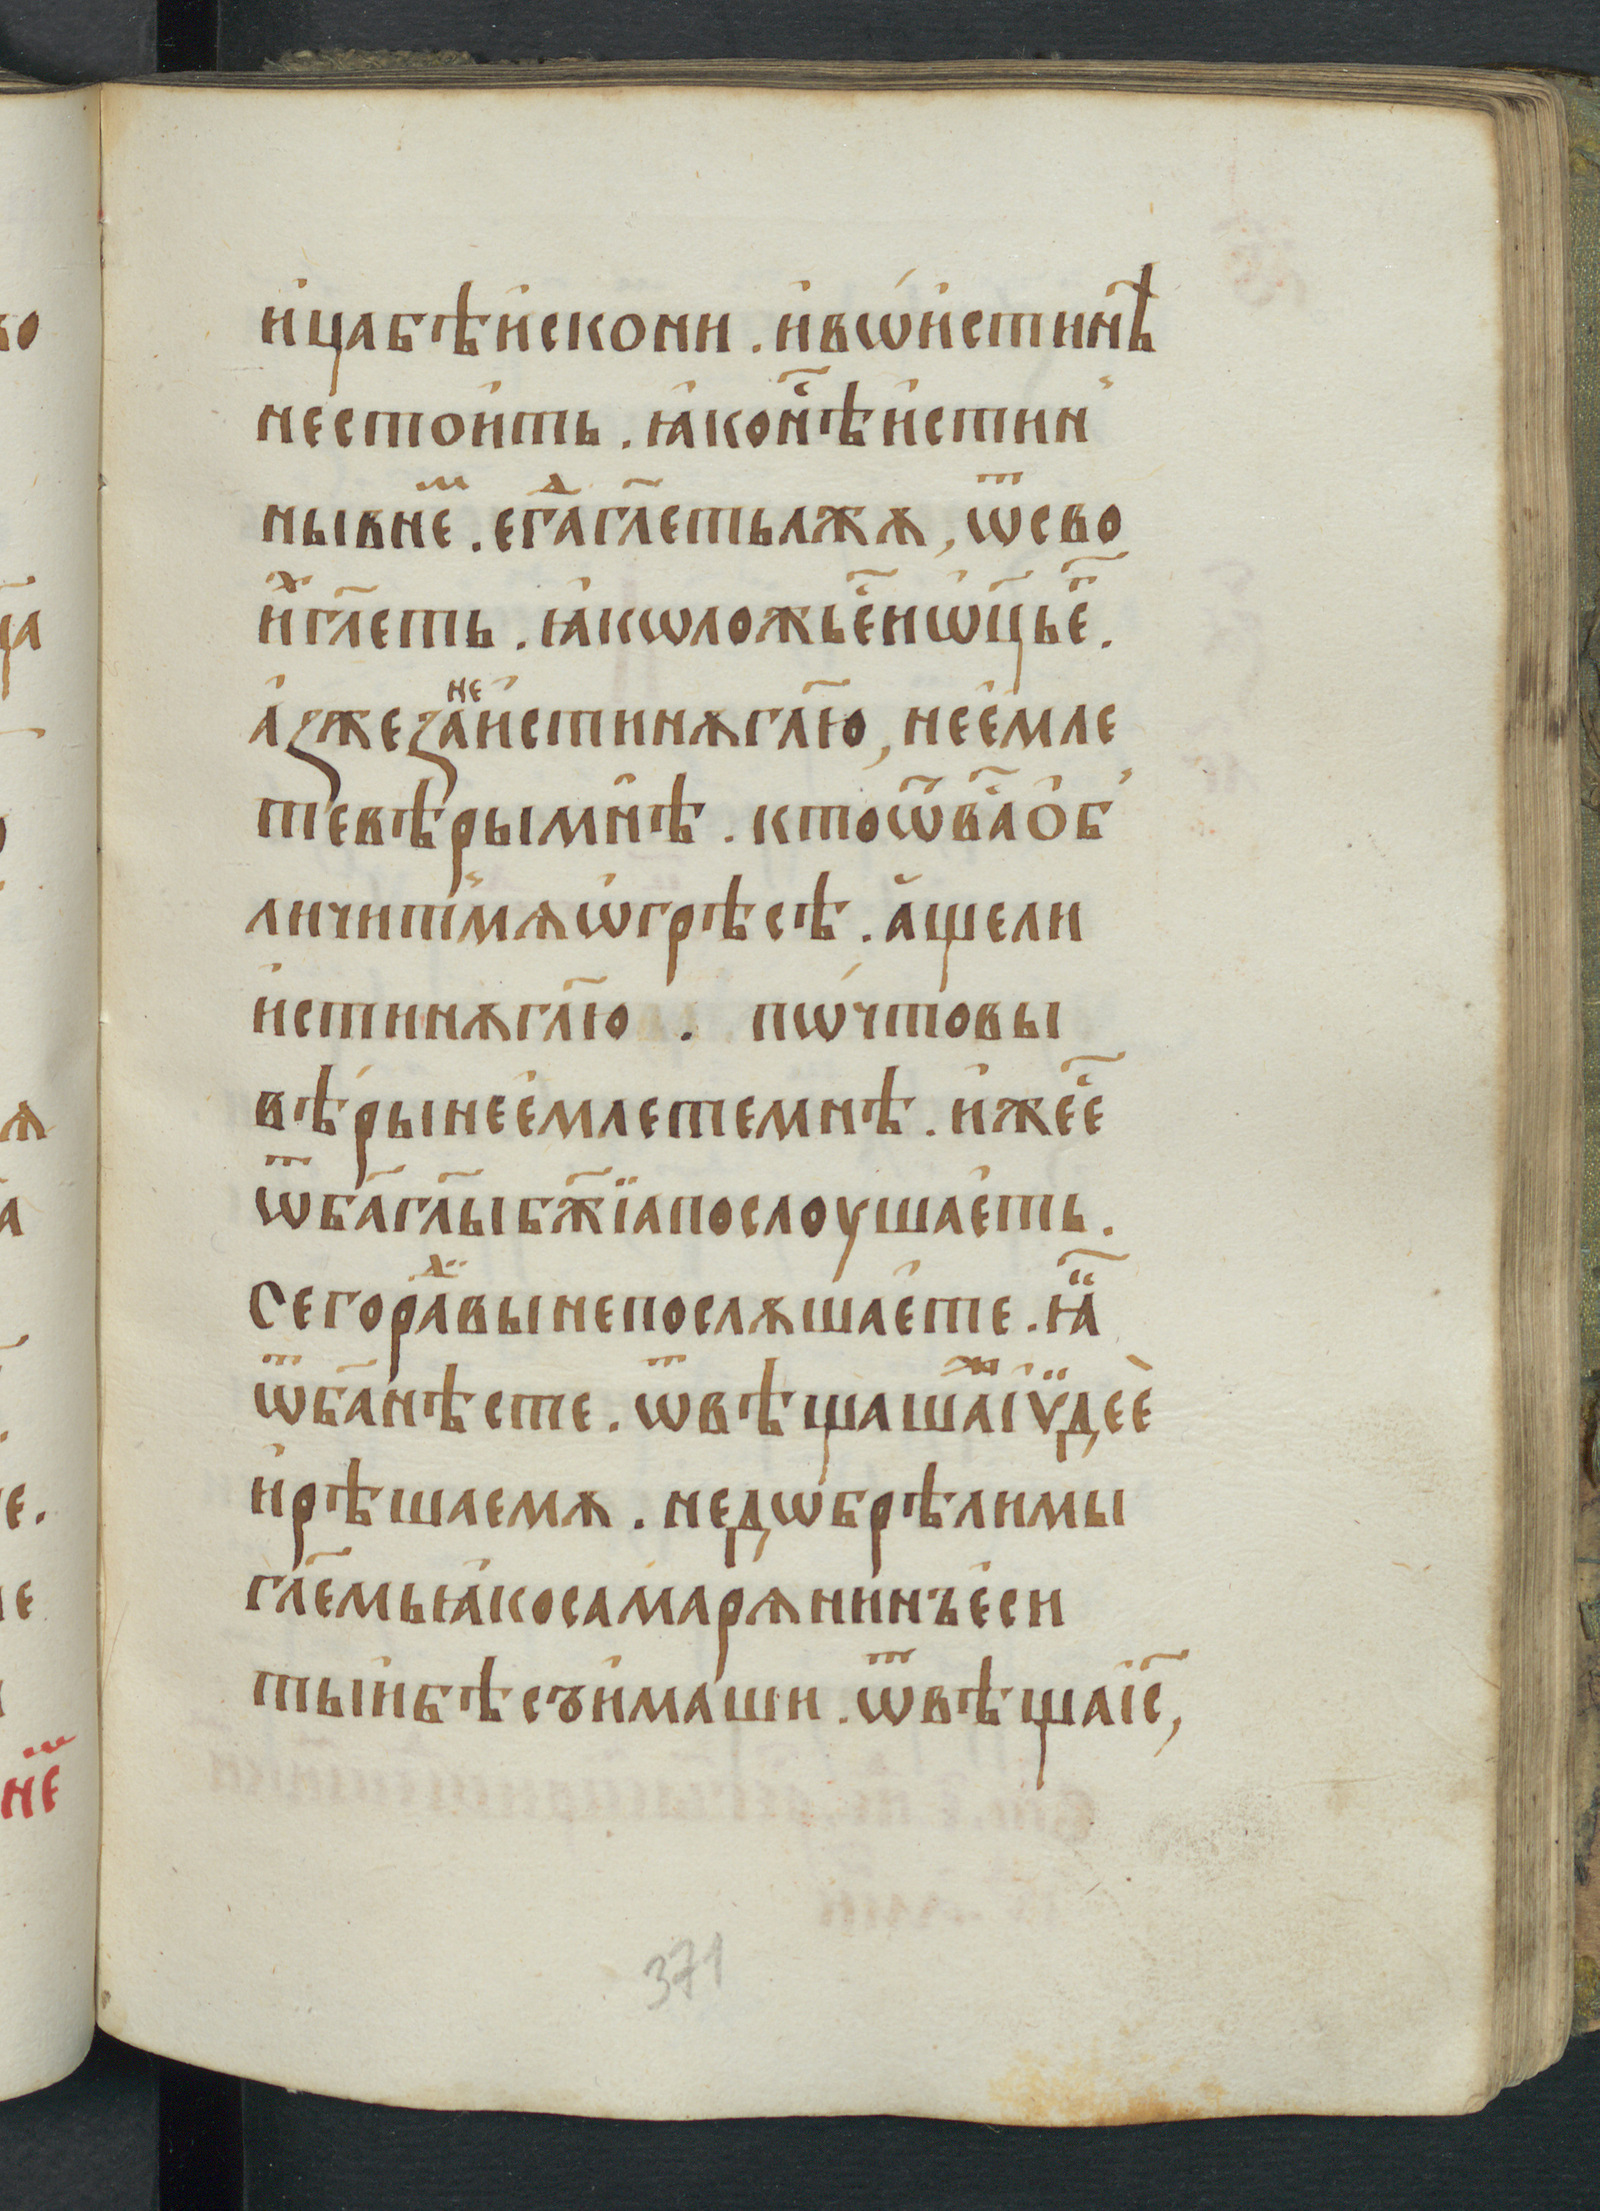 ица бѣ искони . и въ истинѣ
не стоить . ꙗко нⷭ҇ѣ истин
ны в неⷨ . егⷣа гл҃еть лжѫ , ѿ сво
иⷯ гл҃еть . ꙗкѡ ложь еⷭ҇ и ѡц҃ь еⷢ҇ .
аз же занеистинѫ гл҃ю , не емле
те вѣры мнѣ . кто ѿ ваⷭ҇ об
личит мѧ ѡ грѣсѣ . аще ли
истинѫ гл҃ю . пѡ что вы
вѣры не емлете мнѣ . иже еⷭ҇
ѿ ба҃ гл҃ы бж҃їа послоушаеть .
сего раⷣ вы не послѫшаете . ꙗ
ѿ ба҃ нѣсте . ѿвѣщашаⷤ іѵдее
и рѣша емѫ . не дѡбрѣ ли мы
гл҃емь ꙗко самарѧнинъ еси
ты и бѣсъ имаши . ѿвѣща іс҃ ,
371